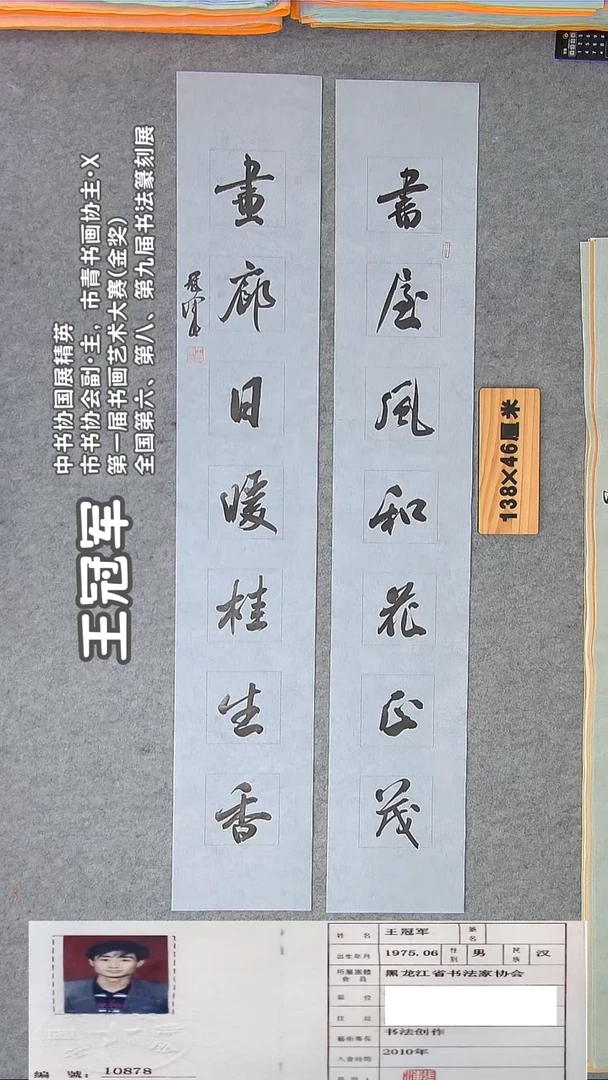 書屋風和花正茂
畫廊日暖桂生香
冠軍書
138×46厘米
王冠军
中书协国展精英
市书协会副·主，市青书画协主·X
第一届书画艺术大赛(金奖)
全国第六、第八、第九届书法篆刻展
姓名 王冠军 筆名
出生年月 1975.06 性别 男 民族 汉
所屬團體會員 黑龙江省书法家协会
單位
住址
藝術專長 书法创作
入會時間 2010年
編號：10878